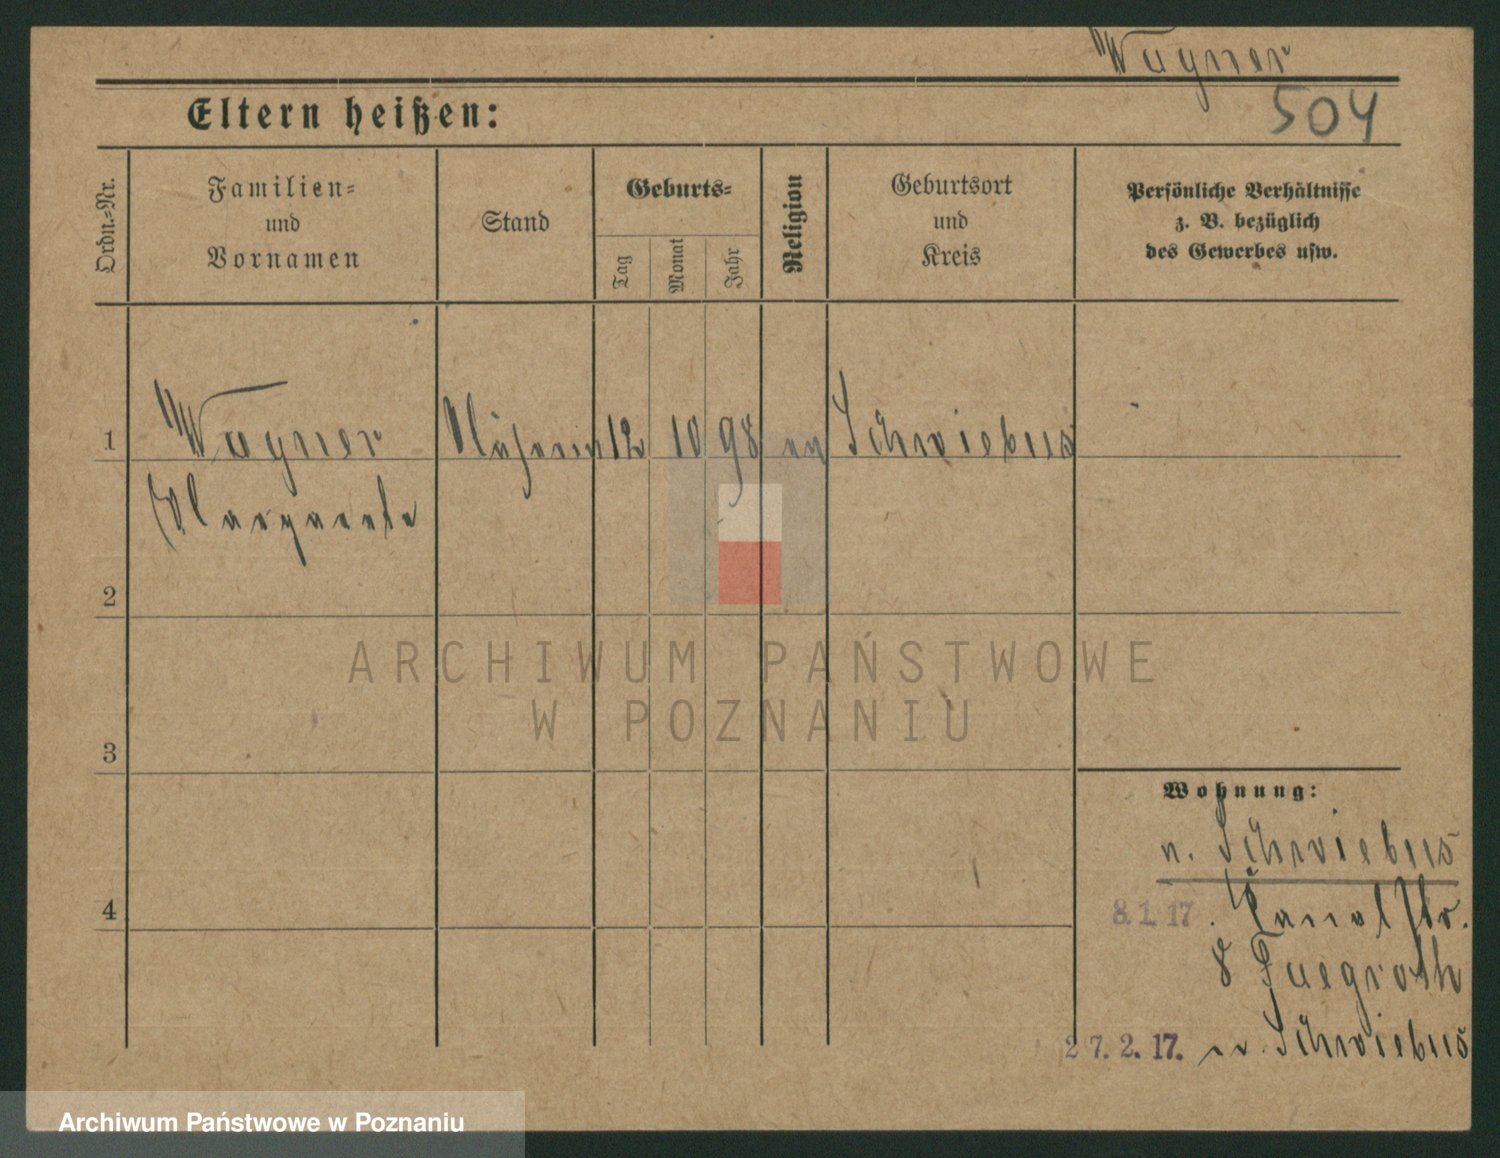 Wagner
Eltern heißen:
504
Ordn.=Nr.
Familien=
und
Vornamen
Stand
Geburts=
Tag
Monat
Jahr
Religion
Geburtsort
und
Kreis
Persönliche Verhältnisse
z. B. bezüglich
des Gewerbes usw.
1
Wagner
Näherin
12
10
98
ev
Schwiebus
Margarete
2
3
4
Wohnung:
n. Schwiebus
8.1.17. Kanalstr.
8
27.2.17. n. Schwiebus
ARCHIWUM PAŃSTWOWE
W POZNANIU
Archiwum Państwowe w Poznaniu